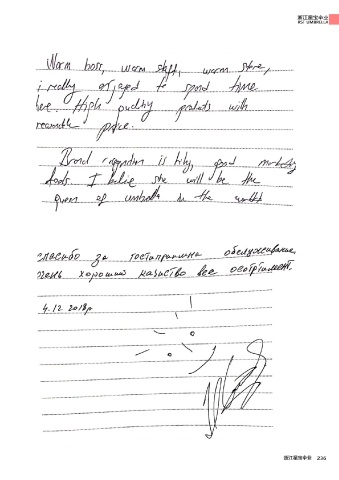 浙江星宝伞业
RST UMBRELLA
Warm boss, warm staff, warm store,
i really enjoyed to spend time
here. High quality products with
reasonable price.
Brand recognition is high, good marketing
I believe she will be the
queen of umbrella in the world
спасибо за гостоприимна обслуживание.
очень хороший качество все
4.12 2018г
浙江星宝伞业 236